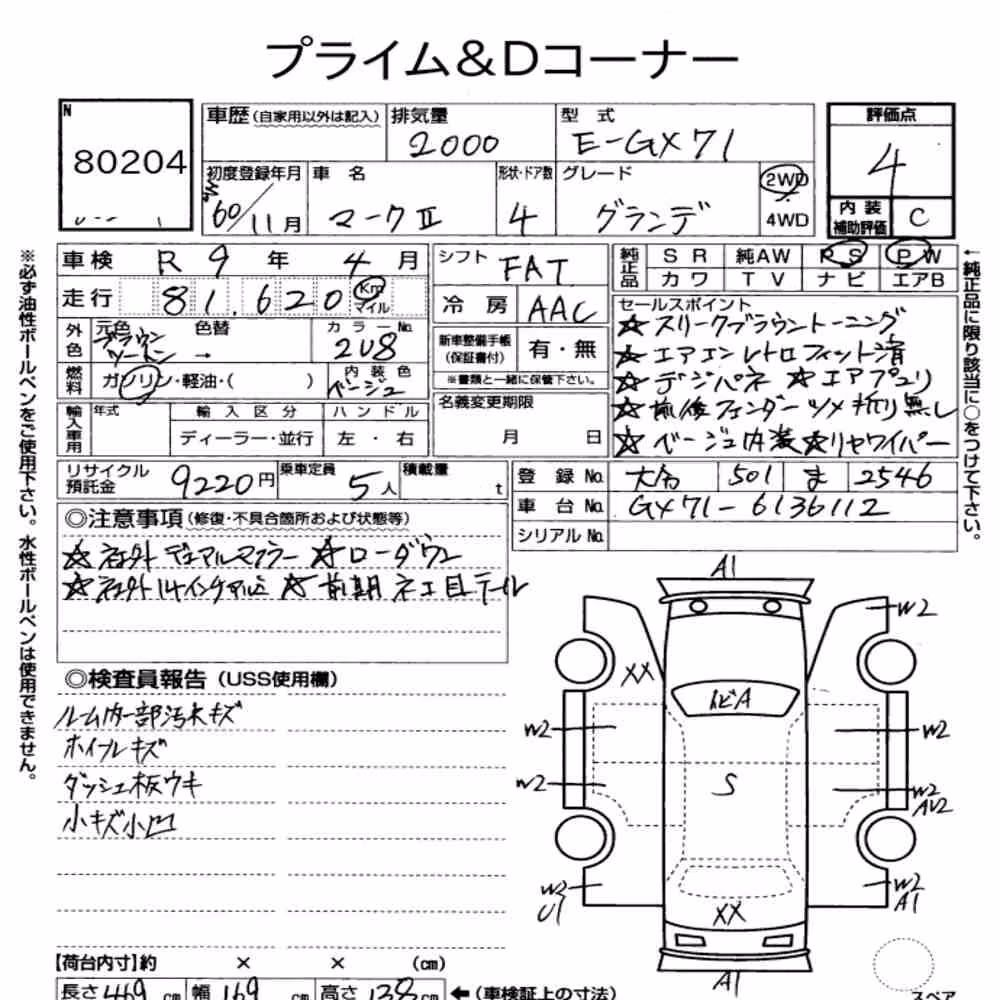 プライム&Dコーナー
N
80204
車歴(自家用以外は記入)
排気量
2000
型式
E-GX71
評価点
4
初度登録年月
60/11月
車名
マークⅡ
形状・ドア数
4
グレード
グランデ
2WD
4WD
内装
補助評価
C
車検 R 9 年 4 月
シフト FAT
純正品
SR 純AW PS PW
カワ TV ナビ エアB
走行 81,620 Km
マイル
冷房 AAC
外色
元色
ブラウン
ツートン
色替
→
カラーNo.
2U8
新車整備手帳
(保証書付)
有・無
※書類と一緒に保管下さい。
燃料
ガソリン・軽油・( )
内装色
ベージュ
セールスポイント
☆スリークブラウントーニング
☆エアエンレトロフィット済
☆デジパネ ☆エアプュリ
☆前後フェンダーツメ折り無し
☆ベージュ内装☆リヤワイパー
輸入車用
年式
輸入区分
ディーラー・並行
ハンドル
左・右
名義変更期限
月 日
リサイクル
預託金
9220円
乗車定員
5人
積載量
t
登録No.
501 ま 2546
車台No.
GX71-6136112
シリアルNo.
◎注意事項(修復・不具合箇所および状態等)
☆社外デュアルマフラー ☆ローダウン
☆社外14インチアルミ ☆前期ネコ目テール
◎検査員報告(USS使用欄)
ルーム内一部汚れキズ
ホイールキズ
ダッシュ板ウキ
小キズ小凹
A1
W2
XX
トビA
W2
W2
W2
S
W2
AU2
W2
U1
XX
W2
A1
A1
スペア
【荷台内寸】約 × × (cm)
長さ469cm 幅169cm 高さ138cm ←(車検証上の寸法)
※必ず油性ボールペンをご使用下さい。水性ボールペンは使用できません。
←純正品に限り該当に○をつけて下さい。